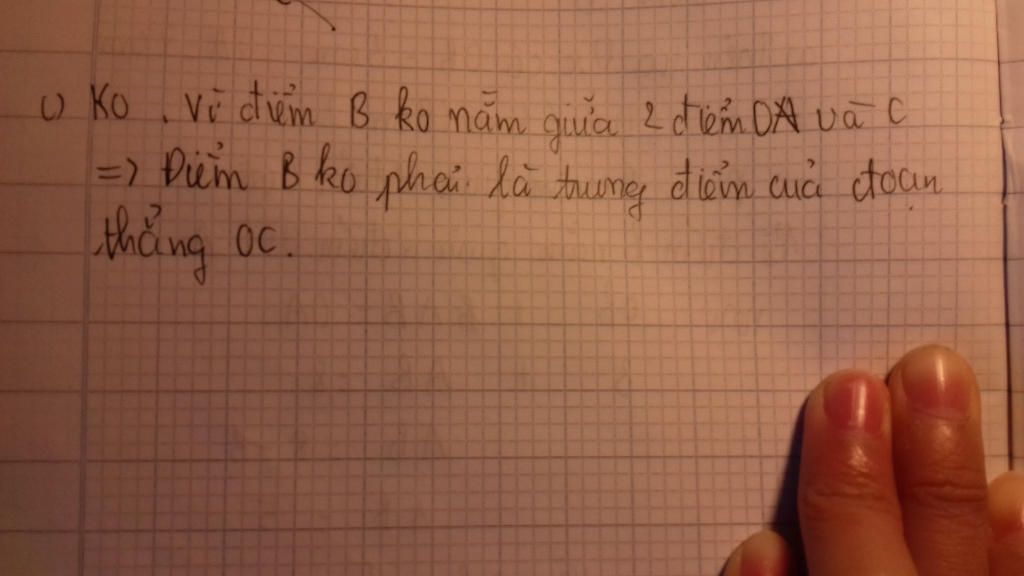 c) Ko. Vì điểm B ko nằm giữa 2 điểm O và C
=> Điểm B ko phải là trung điểm của đoạn
thẳng OC.